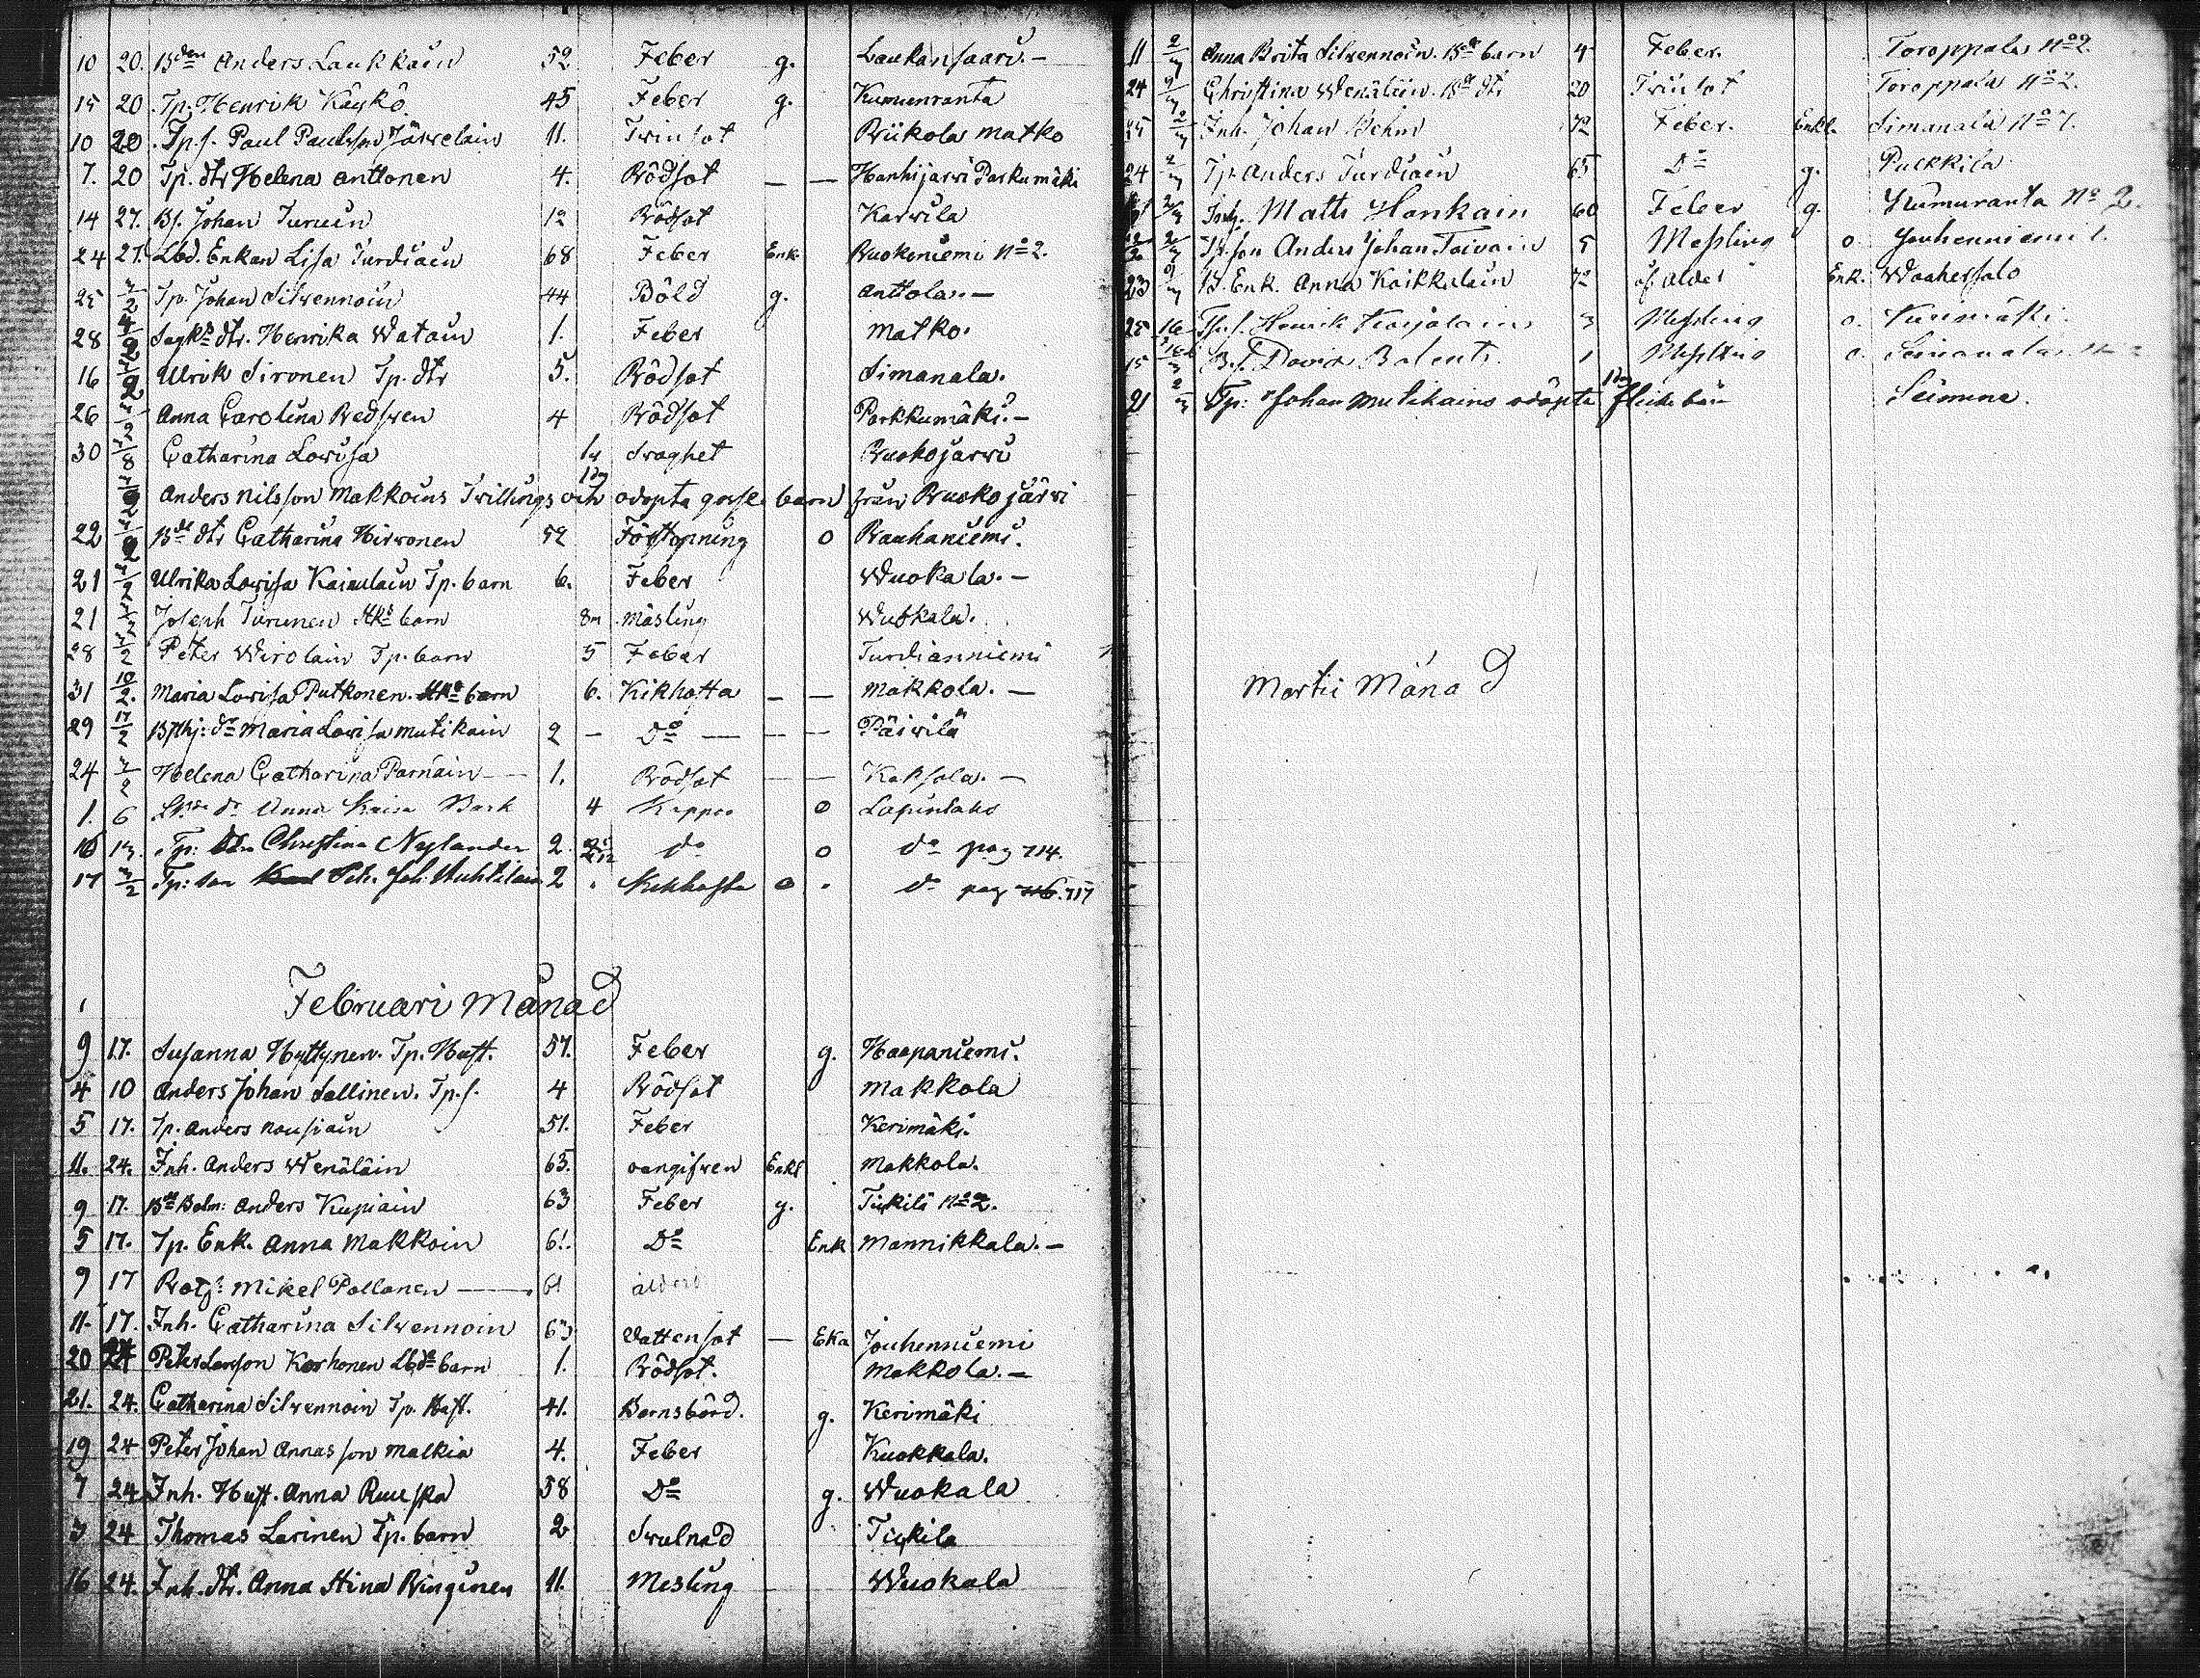 10 20. B:den Anders Laukkain 52 Feber g. Laukansaari. –
15 20 Tp. Henrik Käykö 45 Feber g. Kumenranta
10 20 Tp.s. Paul Paulsson Järvelain 11. Twinsot Riikola matko
7. 20 Tp. dtr Helena Anttonen 4. Rödsot — — Hanhijarvi Parkumäki
14 27. Bs. Johan Turuin 12 Rödsot Karvila
24 27. Lbd. Enkan Lisa Turdiain 68 Feber Enk. Ruokoniemi No 2.
25 3/2 Tp. Johan Silvennoin 44 Böld g. Anttola. –
28 dtr. Henrika Watain 1. Feber matko.
16 Ulrik Sironen Tp. dtr 5. Rödsot Simanala.
26 Anna Carolina Redsven 4 Rödsot Parkkumäki. –
30 Catharina Lovisa Svaghet Ruokojarvi
Anders Nilsson Makkoins Twillings och odöpta gosse barn från Ruokojärvi
22 dtr Catharina Hirvonen 52 Förstopning o Rauhaniemi.
21 Ulrika Lovisa Kaiulain Tp. barn 6. Feber Wuokala. –
21 Joseph Turunen barn 8m Mäsling Wuokala.
28 Peter Wirolain Tp. barn 5 Feber Turdianniemi
31 10/2. Maria Lovisa Putkonen barn 6. Kikhosta — — Makkola. —
29 17/2 Maria Lovisa Mutikain 2 – Do — — — Päivilä
24 Helena Catharina Parnäin 1. Rödsot — — Kaksala. —
1. 6 Anna Kaisa Bask 4 Koppor o Lapinlaks
16 13. Tp: Christina Nylander 2 do o do pag 714.
17 3/2 Tp: son Joh. Huhtilain 2 Kikhosta o do pag 717
Februari Månad
9 17. Susanna Hyttynen. Tp. Hust. 57. Feber g. Haapaniemi.
4 10 Anders Johan Sallinen. Tp.s. 4 Rödsot Makkola
5 17. Tp. Anders Nousiain 51. Feber Kerimäki.
11. 24. Inh. Anders Wenäläin 63. oangifven Enkl Makkola.
9 17. Anders Kupiain 63 Feber g. No 2.
5 17. Tp. Enk. Anna Makkoin 61. Do Enk Mannikkala. –
9 17 Mikel Pollanen — 61
11. 17. Inh. Catharina Silvennoin 63 Vattensot — Eka Jouhenniemi
20 24 Peter Larsson Korhonen barn 1. Rödsot. Makkola. –
21. 24. Catharina Silvennoin Tp. Hust. 41. Barnsbörd. g. Kerimäki
19 24 Peter Johan Annasson Malkia 4. Feber Kuokkala.
7 24 Inh. Hust. Anna Ruuska 58 Do g. Wuokala
3 24 Thomas Larinen Tp. barn 2 Svulnad
16 24. Inh. dtr. Anna Stina Ringinen 11. Mesling Wuokala
11 2/3 Anna Brita Silvennoin. barn 4 Feber. Toroppala No 2.
24 Christina Wenäläin. dtr 20 Twinsot Toroppala No 2.
25 2/3 Inh. Johan Behm 72 Feber. Enkl. Simanala No 7.
24 2/3 Tp. Anders Turdiain 65 Do g. Pulkkila
Matts Hankain 60 Feber g. Kumuranta No 2.
Tp. son Anders Johan Toivain 5 Messling o. Jouhenniemi 1.
23 B. Enk. Anna Kaikkalain 72 af alder Enk. Waahersalo
25 16 Tp.s. Henrik Karjalain 3 Messling o.
15 B.s. David 1 Messling o. Simanala
21 2/3 Tp: Johan Mutikains odöpta flicke barn Seimene.
Martii Månad